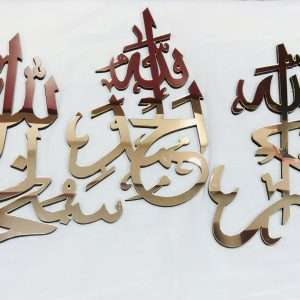 الله أكبر
الحمد لله
سبحان الله